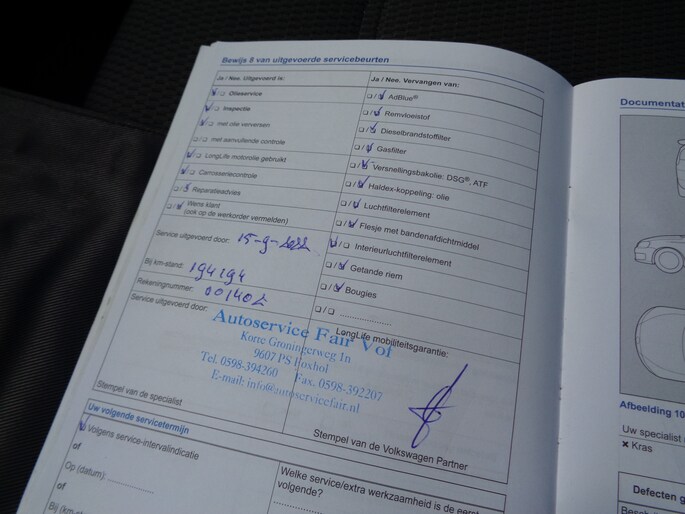 Bewijs 8 van uitgevoerde servicebeurten
Ja / Nee. Uitgevoerd is:
Olieservice
Inspectie
met olie verversen
met aanvullende controle
LongLife motorolie gebruikt
Carrosseriecontrole
Reparatieadvies
Wens klant
(ook op de werkorder vermelden)
Service uitgevoerd door: 15-9-2022
Bij km-stand: 194194
Rekeningnummer: 001402
Service uitgevoerd door:
Stempel van de specialist
Ja / Nee. Vervangen van:
AdBlue®
Remvloeistof
Dieselbrandstoffilter
Gasfilter
Versnellingsbakolie: DSG®, ATF
Haldex-koppeling: olie
Luchtfilterelement
Flesje met bandenafdichtmiddel
Interieurluchtfilterelement
Getande riem
Bougies
LongLife mobiliteitsgarantie:
Autoservice Fair Vof
Korte Groningerweg 1n
9607 PS Foxhol
Tel. 0598-394260 Fax. 0598-392207
E-mail: info@autoservicefair.nl
Stempel van de Volkswagen Partner
Uw volgende servicetermijn
Volgens service-intervalindicatie
of
Op (datum):
of
Bij (km-stand
Welke service/extra werkzaamheid is de eerst
volgende?
Documentat
Afbeelding 10
Uw specialist
× Kras
Defecten g